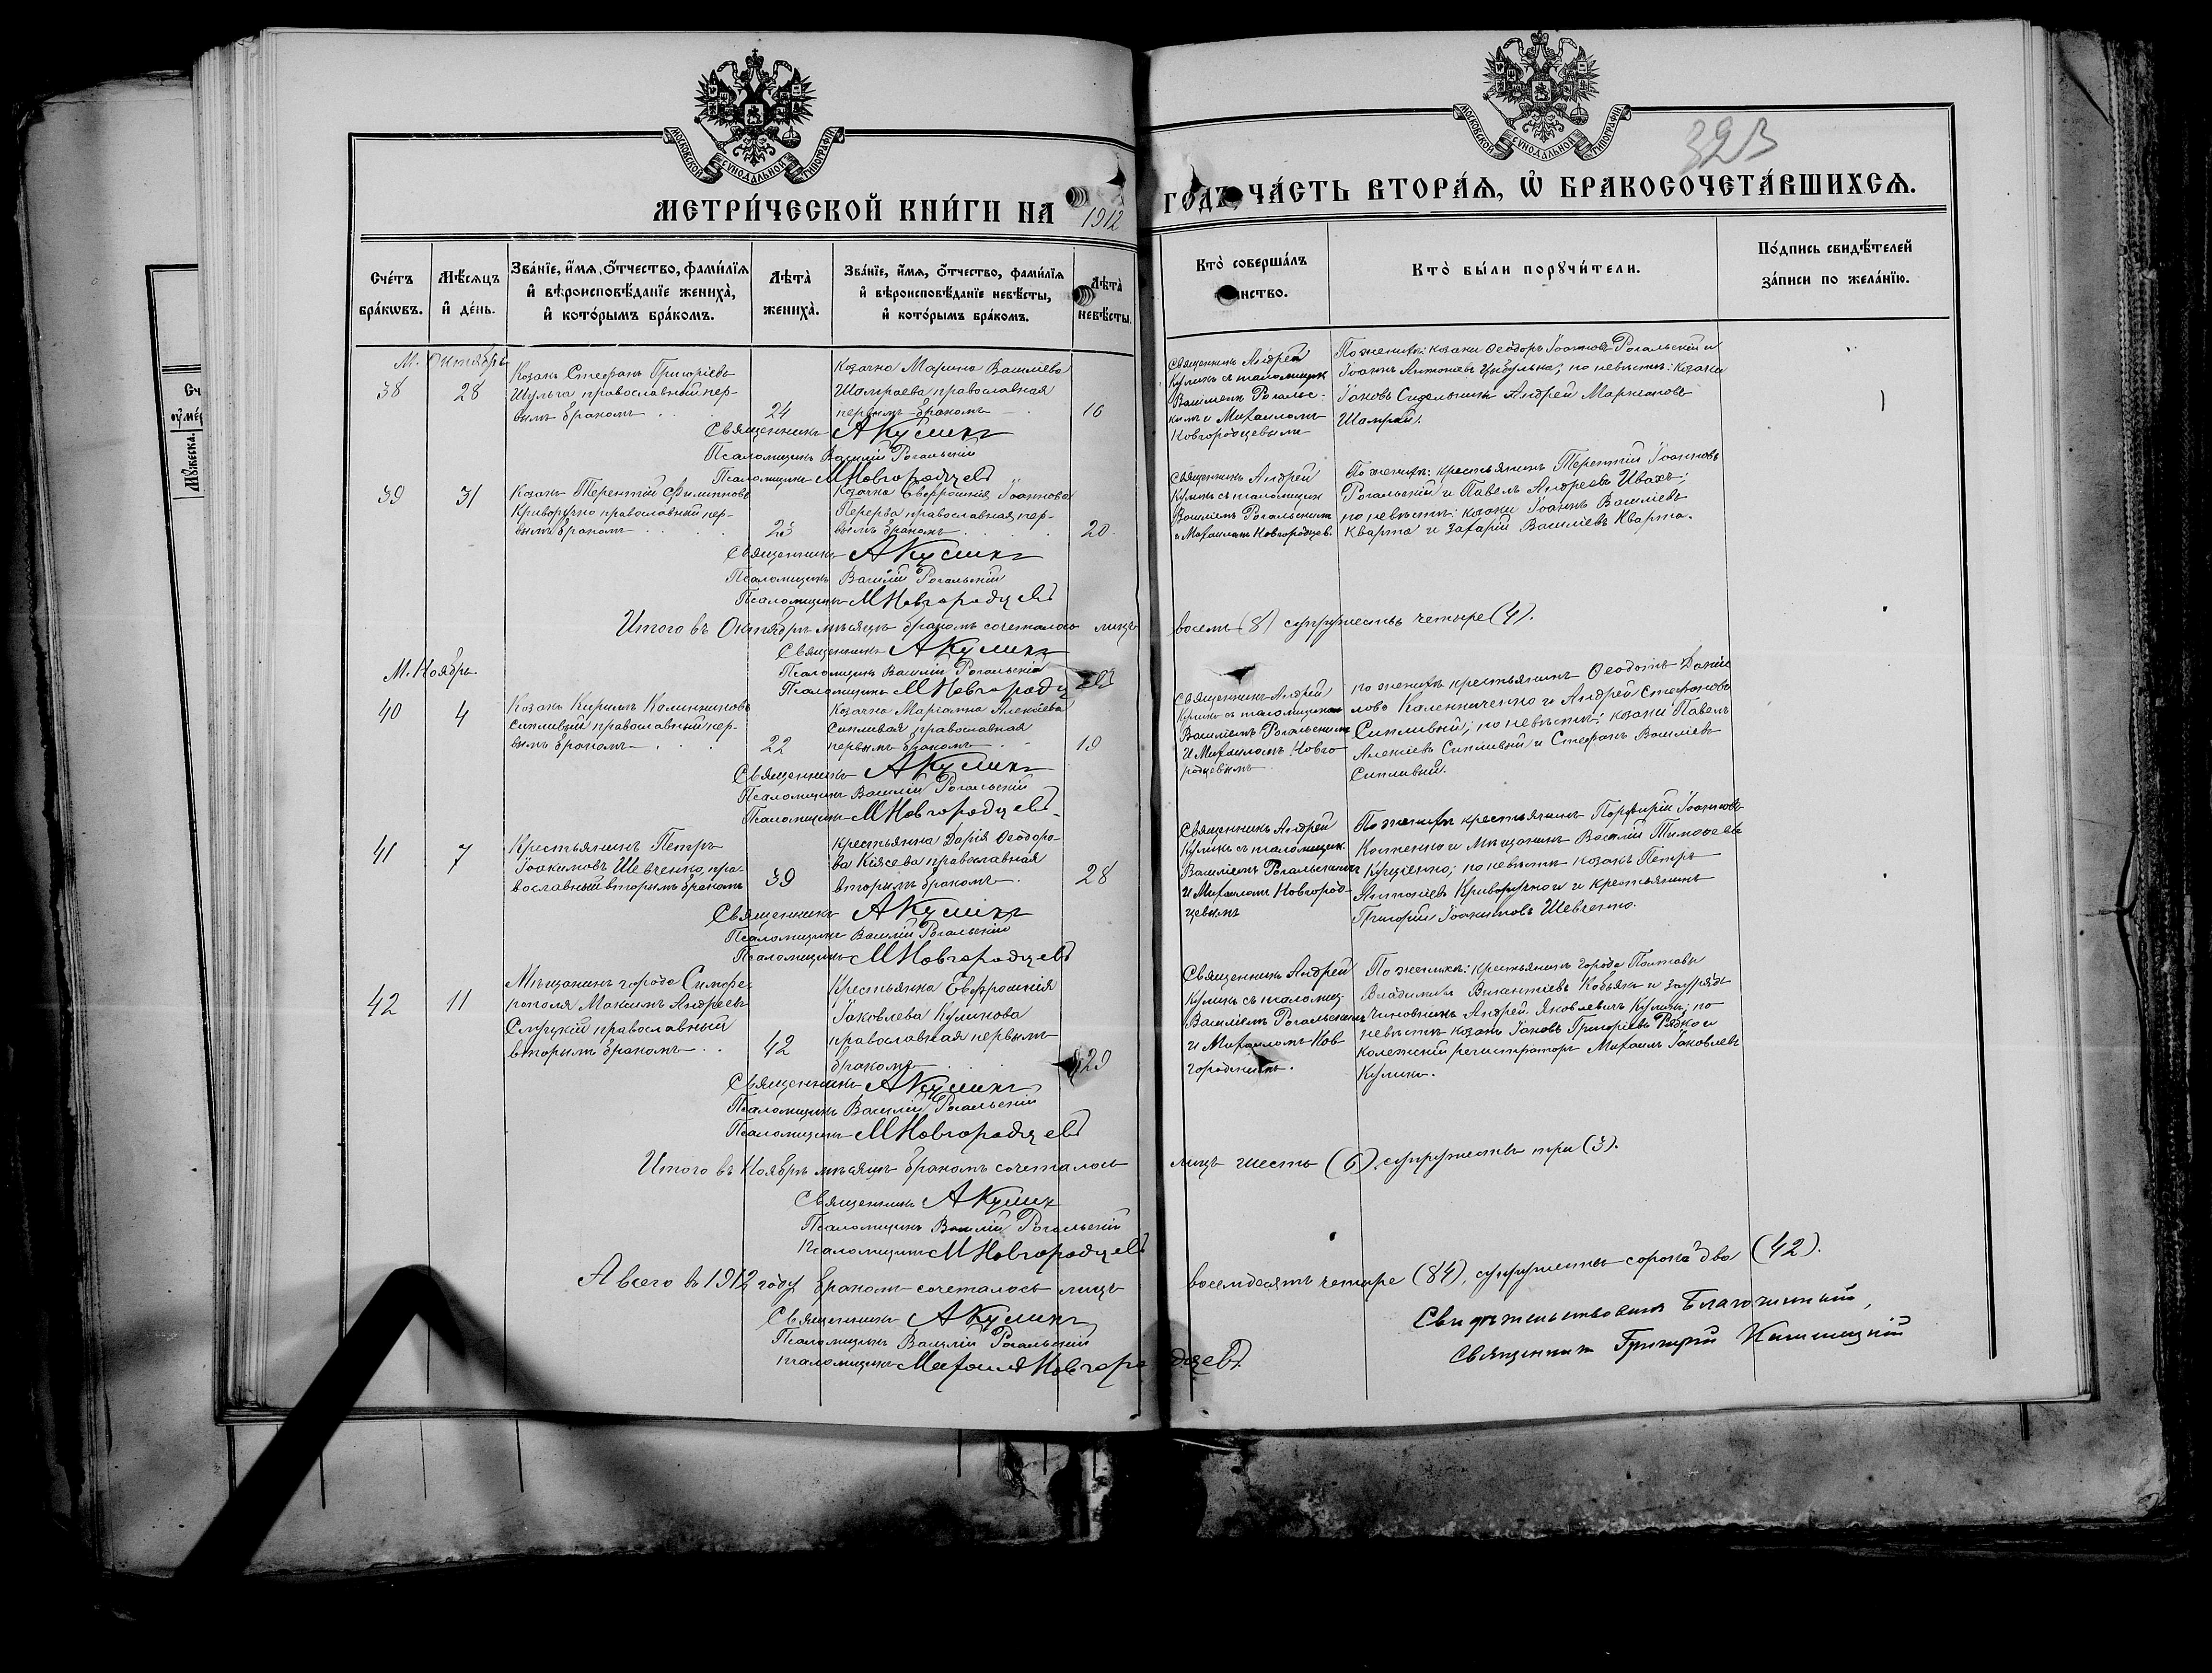 МОСКОВСКОЙ СѴНОДАЛЬНОЙ ТИПОГРАФІИ
МОСКОВСКОЙ СѴНОДАЛЬНОЙ ТИПОГРАФІИ
323
МЕТРИ́ЧЕСКОЙ КНИ́ГИ НА 1912 ГОДЪ, ЧА́СТЬ ВТОРА́Я, Ѡ БРАКОСОЧЕТА́ВШИХСЯ.
Сче́тъ бра́кѡвъ.
Мѣ́сяцъ и де́нь.
Зва́нїе, и́мя, ѻ́тчество, фами́лїя и вѣроисповѣ́данїе жениха̀, и кото́рымъ бра́комъ.
Лѣта̀ жениха̀.
Зва́нїе, и́мя, ѻ́тчество, фами́лїя и вѣроисповѣ́данїе невѣ́сты, и кото́рымъ бра́комъ.
Лѣта̀ невѣ́сты.
Кто̀ соверша́лъ
Кто̀ бы́ли порꙋчи́тели.
По́дпись свидѣ́телей за́писи по жела́нїю.
М. Октябрь
38
28
Козакъ Стефанъ Григоріевъ
Шульга православный пер-
вымъ бракомъ
24
Козачка Марина Василіева
Шамраева православная
первымъ бракомъ
16
Священникъ Андрей
Куликъ съ псаломщик
Василіемъ Рогальс-
кимъ и Михаиломъ
Новгородцевымъ
По женихѣ: козаки Ѳеодоръ Іоанновъ Рогальскій и
Іоаннъ Антоніевъ Цыбулька; по невѣстѣ: козаки
Іаковъ Андрей
Шамрай.
Священникъ АКуликъ
Псаломщикъ Василій Рогальскій
Псаломщикъ МНовгородцевъ
39
31
Козакъ Терентій Филипповъ
Криворучко православный пер-
вымъ бракомъ
23
Козачка Евфросинія Іоаннова
Перерва православная пер-
вымъ бракомъ
20
Священникъ Андрей
Куликъ съ псаломщик
Василіемъ Рогальскимъ
и Михаиломъ Новгородцев.
По женихѣ: крестьянинъ Терентій Іоанновъ
Рогальскій и Павелъ Андреевъ Ивахъ;
по невѣстѣ: козаки Іоаннъ Василіевъ
Кварта и Захарій Василіевъ Кварта.
Священникъ АКуликъ
Псаломщикъ Василій Рогальскій
Псаломщикъ МНовгородцевъ
Итого въ Октябрѣ мѣсяцѣ бракомъ сочеталось лицъ восемь (8) супружествъ четыре (4).
Священникъ АКуликъ
Псаломщикъ Василій Рогальскій
Псаломщикъ МНовгородцевъ
М. Ноябрь.
40
4
Козакъ Кириллъ Калинниковъ
Сипливый православный пер-
вымъ бракомъ
22
Козачка Маріанна Алексіева
Сипливая православная
первымъ бракомъ
19
Священникъ Андрей
Куликъ съ псаломщикомъ
Василіемъ Рогальскимъ
и Михаиломъ Новго-
родцевымъ
по женихѣ крестьянинъ Ѳеодотъ Даніи-
ловъ Каленниченко и Андрей Стефановъ
Сипливый; по невѣстѣ: козаки Павелъ
Алексіевъ Сипливый и Стефанъ Василіевъ
Сипливый.
Священникъ АКуликъ
Псаломщикъ Василій Рогальскій
Псаломщикъ МНовгородцевъ
41
7
Крестьянинъ Петръ
Іоакимовъ Шевченко, пра-
вославный вторымъ бракомъ
39
Крестьянка Дарія Ѳеодоро-
ва Кіясева православная
вторымъ бракомъ
28
Священникъ Андрей
Куликъ съ псаломщик
Василіемъ Рогальскимъ
и Михаиломъ Новгород-
цевымъ
По женихѣ крестьянинъ Порфирій Іоанновъ
и Мѣщанинъ Василій Тимоѳеевъ
Куценко; по невѣстѣ козакъ Петръ
Антоніевъ Криворучко и крестьянинъ
Григорій Іоакимовъ Шевченко.
Священникъ АКуликъ
Псаломщикъ Василій Рогальскій
Псаломщикъ МНовгородцевъ
42
11
Мѣщанинъ города Симфе-
рополя Максимъ Андреевъ
Слуцкій православный
вторымъ бракомъ
42
Крестьянка Евфросинія
Іаковлева Куликова
православная первымъ
бракомъ
29
Священникъ Андрей
Куликъ съ псаломщ.
Василіемъ Рогальскимъ
и Михаиломъ Нов-
городцевымъ.
По женихѣ: крестьянинъ города Полтавы
Владимиръ Викентіевъ Кобьякъ и заурядъ
чиновникъ Андрей Яковлевичъ Куликъ; по
невѣстѣ козакъ Іаковъ Григоріевъ Рябко и
колежскій регистраторъ Михаилъ Іаковлевъ
Куликъ.
Священникъ АКуликъ
Псаломщикъ Василій Рогальскій
Псаломщикъ МНовгородцевъ
Итого въ Ноябрѣ мѣсяцѣ бракомъ сочеталось лицъ шесть (6), супружествъ три (3).
Священникъ АКуликъ
Псаломщикъ Василій Рогальскій
Псаломщикъ МНовгородцевъ
А всего въ 1912 году бракомъ сочеталось лицъ восемдесятъ четыре (84), супружествъ сорокъ два (42).
Священникъ АКуликъ
Псаломщикъ Василій Рогальскій
псаломщикъ Михаилъ Новгородцевъ
Свидѣтельствовалъ Благочинный,
Священникъ Григорій